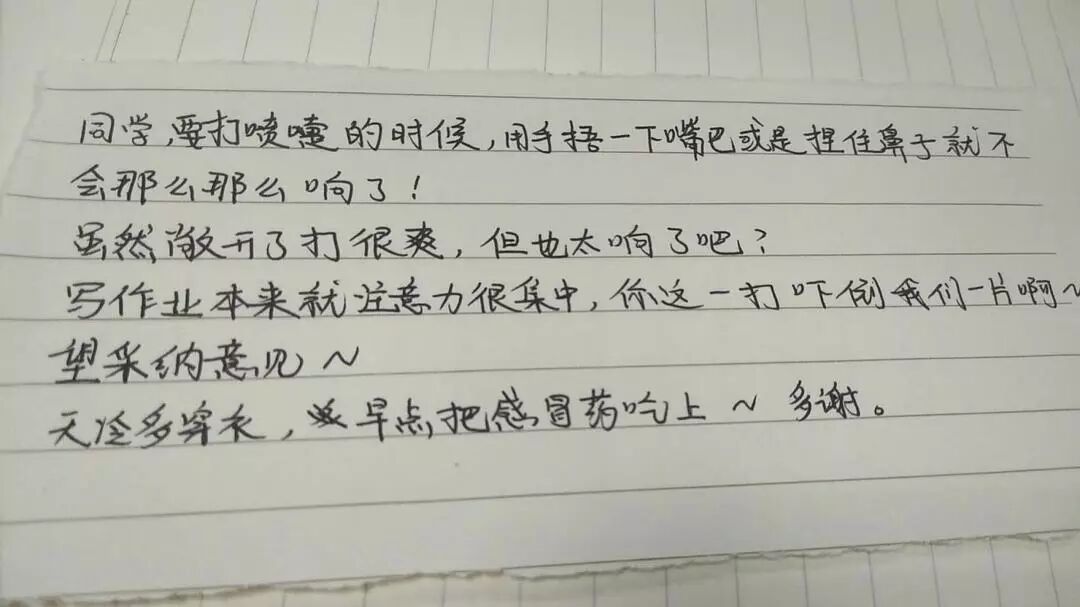 同学,要打喷嚏的时候,用手捂一下嘴巴或是捏住鼻子就不
会那么那么响了!
虽然敞开了打很爽,但也太响了吧?
写作业本来就注意力很集中,你这一打吓倒我们一片啊~
望采纳意见~
天冷多穿衣,早点把感冒药吃上~多谢。